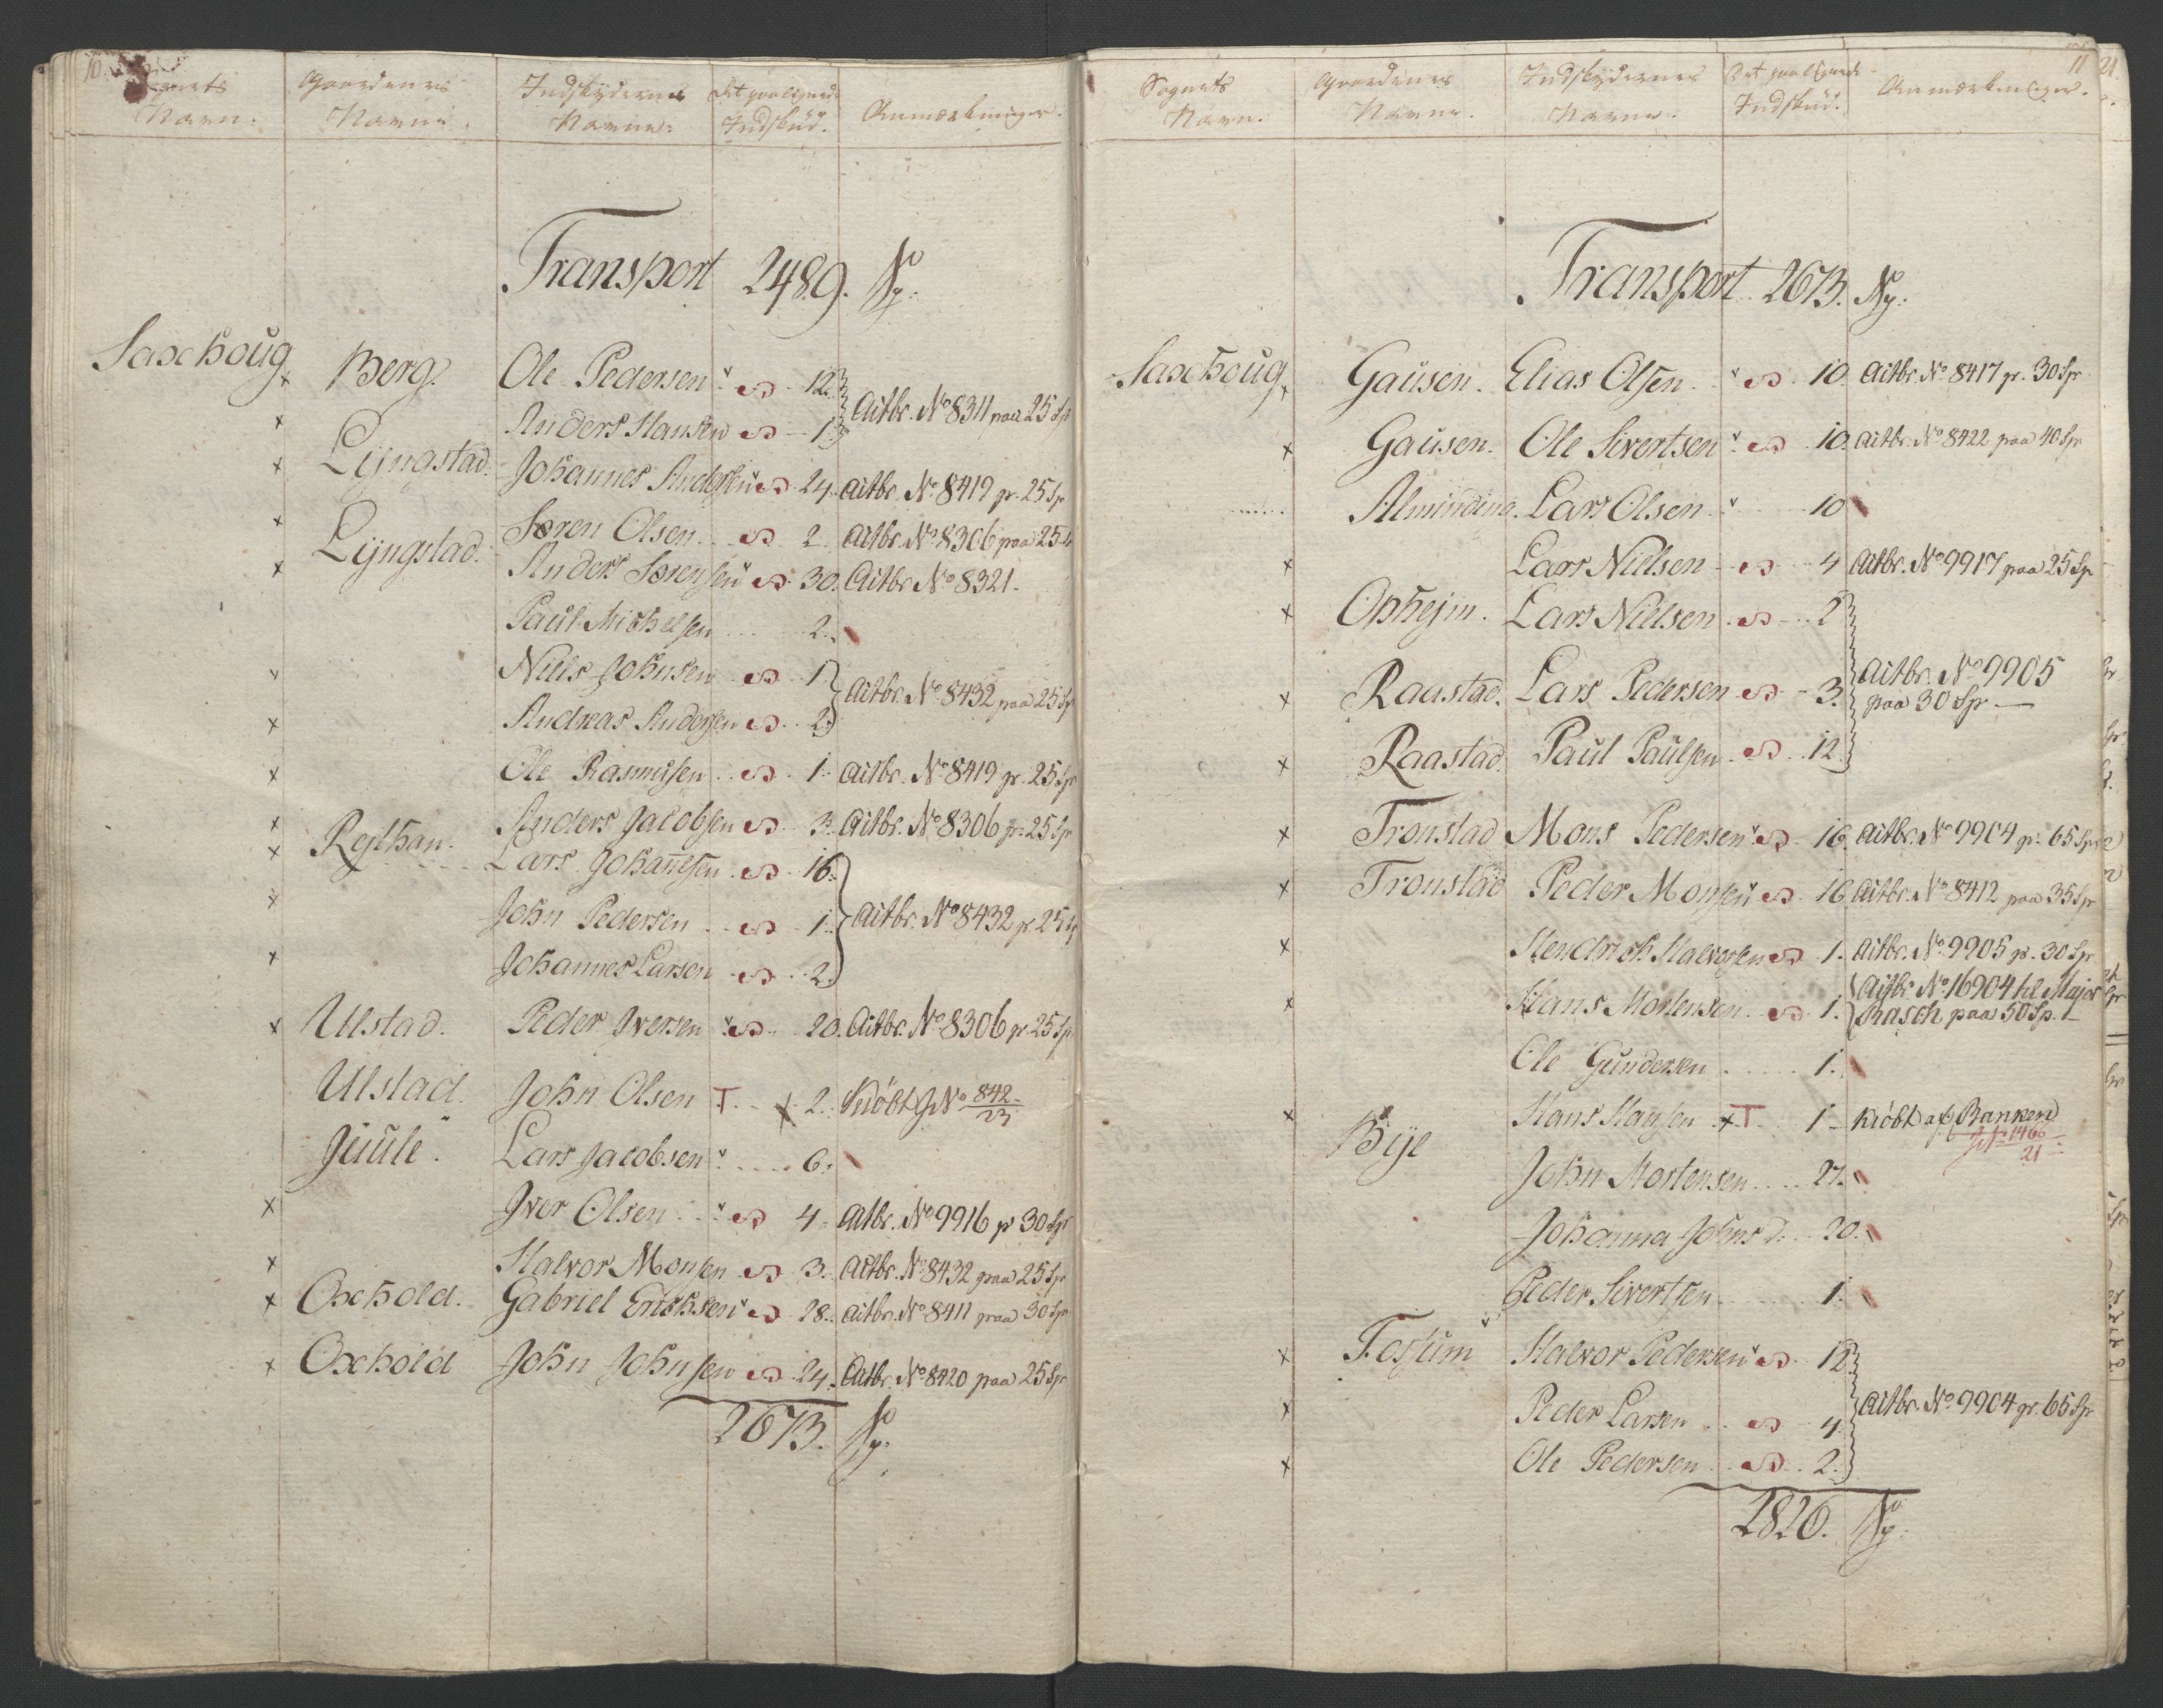 10.
Sognets Navn. Gaardenes Navne. Indskydernes Navne. Det paalignede Indskud. Anmærkninger.
Transport 2489. Sp.
Saxhoug Berg. Ole Pedersen 12.
Anders Hansen 1. Actbr. No 8311 paa 25 Sp
Lÿngstad. Johannes Andersen 24. Actbr. No 8419 pr. 25 Sp
Lÿngstad. Søren Olsen 2. Actbr. No 8306 paa 25
Anders Sørensen 30. Actbr No 8321.
Paul Michelsen 2.
Niels Johnsen 1
Actbr. No 8432 paa 25 Sp
Andreas Andersen 2.
Ole Rasmusen 1. Actbr. No 8419 pr. 25 Sp
Anders Jacobsen 3. Actbr. No 8306 pr. 25 Sp
Rejlhan. Lars Johañesen 16.
John Pedersen 1. Actbr. No 8432 pr 25
Johannes Larsen 2.
Ulstad. Peder Iversen 20. Actbr. No 8306 pr. 25 Sp
Ulstad. John Olsen T. x 2. Kiöbt No 842/23
Juule. Lars Jacobsen 6.
Iver Olsen 4. Actbr. No 9916 pr 30 Sp
Halvor Monsen 3. Actbr. No 8432 paa 25 Sp
Oxhold. Gabriel Erichsen 28. Actbr. No 8411 paa 30 Sp
Oxhold John Johnsen 24. Actbr. No 8420 paa 25 Sp
2673. Sp.
11
Sognets Navn. Gaardenes Navne. Indskydernes Navne. Det paalignede Indskud. Anmærkninger.
Transport 2673. Sp.
Saxhoug Gausen. Elias Olsen 10. Actbr. No 8417 pr. 30 Sp
Gausen. Ole Sivertsen 10. Actbr. No 8422 paa 40 Sp
Alminding. Lars Olsen 10
Lars Nielsen 4 Actbr. No 9917 paa 25 Sp
Ophejm. Lars Nielsen 2
Raastad. Lars Pedersen 3. Actbr. No 9905
paa 30 Sp
Raastad. Paul Paulsen 12.
Tronstad Mons Pedersen 16. Actbr. No 9904 pr. 65 Sp
Tronstad Peder Monsen 16 Actbr. No 8412 paa 35 Sp
Hendrich Halvorsen 1. Actbr. No 9905 pr. 30 Sp
Hans Mortensen 1. Actbr No 16904 til Major
Rasch paa 50 Sp.
Ole Gundersen 1.
Bÿe Hans Hansen x T 1 Kiöbt af Banken
1466
21
John Mortensen 27.
Johanna Johns D. 20.
Peder Sivertsen 1.
Fossum Halvor Pedersen 12
Peder Larsen 4. Actbr. No 9904 pr. 65 Sp
Ole Pedersen 2.
2826. Sp.